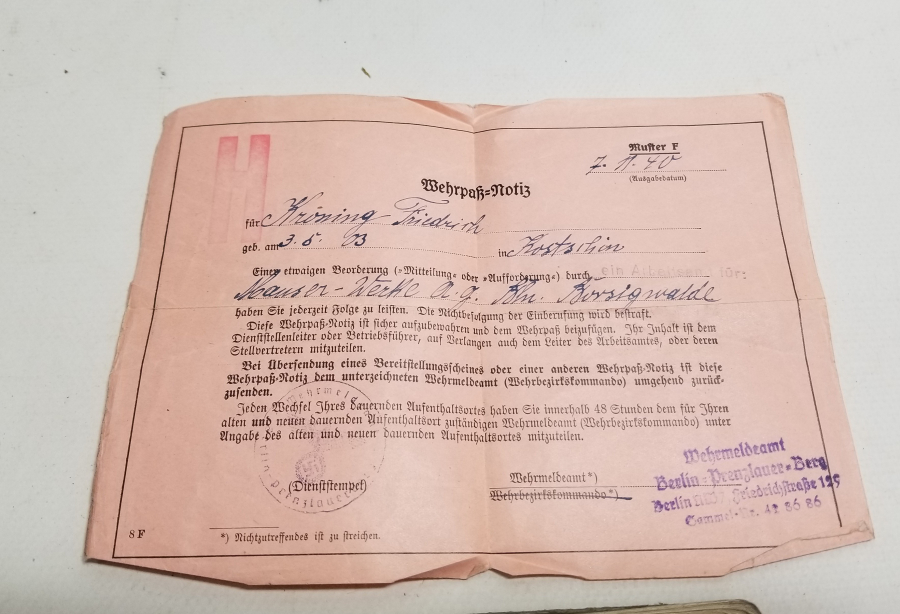 Muster F
7. 11. 40
(Ausgabedatum)
Wehrpaß-Notiz
für Kröning Friedrich
geb. am 3. 5. 03 in Kostschin
Einer etwaigen Beorderung (»Mitteilung« oder »Aufforderung«) durch ein Arbeitsamt für:
Mauser-Werke A.g. Bln. Borsigwalde
haben Sie jederzeit Folge zu leisten. Die Nichtbefolgung der Einberufung wird bestraft.
Diese Wehrpaß-Notiz ist sicher aufzubewahren und dem Wehrpaß beizufügen. Ihr Inhalt ist dem
Dienststellenleiter oder Betriebsführer, auf Verlangen auch dem Leiter des Arbeitsamtes, oder deren
Stellvertretern mitzuteilen.
Bei Übersendung eines Bereitstellungsscheines oder einer anderen Wehrpaß-Notiz ist diese
Wehrpaß-Notiz dem unterzeichneten Wehrmeldeamt (Wehrbezirkskommando) umgehend zurück-
zusenden.
Jeden Wechsel Ihres dauernden Aufenthaltsortes haben Sie innerhalb 48 Stunden dem für Ihren
alten und neuen dauernden Aufenthaltsort zuständigen Wehrmeldeamt (Wehrbezirkskommando) unter
Angabe des alten und neuen dauernden Aufenthaltsortes mitzuteilen.
(Dienststempel)
Wehrmeldeamt*)
Wehrbezirkskommando*)
Wehrmeldeamt
Berlin-Prenzlauer-Berg
Berlin Friedrichstraße 129
Sammel-Nr. 42 56 86
8 F
*) Nichtzutreffendes ist zu streichen.